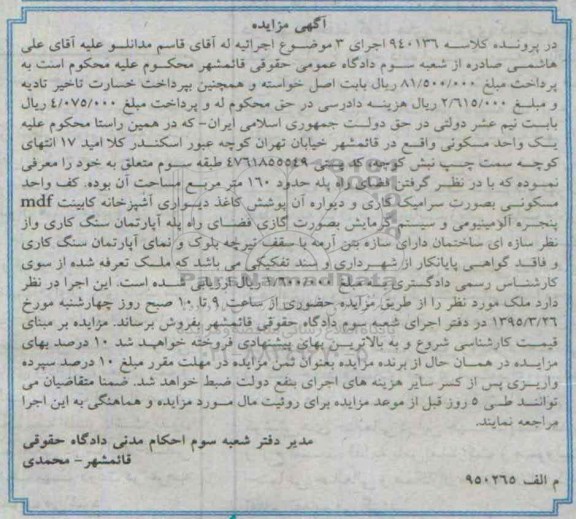 آگهی مزایده
در پرونده کلاسه ۹۴۰۱۳۶ اجرای ۳ موضوع اجرائیه له آقای قاسم مدانلو علیه آقای علی
هاشمی صادره از شعبه سوم دادگاه عمومی حقوقی قائمشهر محکوم علیه محکوم است به
پرداخت مبلغ ۸۱/۵۰۰/۰۰۰ ریال بابت اصل خواسته و همچنین بپرداخت خسارت تاخیر تادیه
و مبلغ ۲/۶۱۵/۰۰۰ ریال هزینه دادرسی در حق محکوم له و پرداخت مبلغ ۴/۰۷۵/۰۰۰ ریال
بابت نیم عشر دولتی در حق دولت جمهوری اسلامی ایران- که در همین راستا محکوم علیه
یک واحد مسکونی واقع در قائمشهر خیابان تهران کوچه عبور اسکندر کلا امید ۱۷ انتهای
کوچه سمت چپ نبش کوچه، کد پستی ۴۷۶۱۸۵۵۵۴۹ طبقه سوم متعلق به خود را معرفی
نموده که با در نظر گرفتن فضای راه پله حدود ۱۶۰ متر مربع مساحت آن بوده. کف واحد
مسکونی بصورت سرامیک کاری و دیواره آن پوشش کاغذ دیواری آشپزخانه کابینت mdf
پنجره آلومینیومی و سیستم گرمایش بصورت گازی فضای راه پله آپارتمان سنگ کاری واز
نظر سازه ای ساختمان دارای سازه بتن آرمه با سقف تیرچه بلوک و نمای آپارتمان سنگ کاری
و فاقد گواهی پایانکار از شهرداری و سند تفکیکی می باشد که ملک تعرفه شده از سوی
کارشناس رسمی دادگستری به مبلغ ریال ارزیابی شده است. این اجرا در نظر
دارد ملک مورد نظر را از طریق مزایده حضوری از ساعت ۹ تا ۱۰ صبح روز چهارشنبه مورخ
۱۳۹۵/۳/۲۶ در دفتر اجرای شعبه سوم دادگاه حقوقی قائمشهر بفروش برساند. مزایده بر مبنای
قیمت کارشناسی شروع و به بالاترین بهای پیشنهادی فروخته خواهد شد ۱۰ درصد بهای
مزایده در همان حال از برنده مزایده بعنوان ثمن مزایده در مهلت مقرر مبلغ ۱۰ درصد سپرده
واریزی پس از کسر سایر هزینه های اجرای بنفع دولت ضبط خواهد شد. ضمنا متقاضیان می
توانند طی ۵ روز قبل از موعد مزایده برای روئیت مال مورد مزایده و هماهنگی به این اجرا
مراجعه نمایند.
مدیر دفتر شعبه سوم احکام مدنی دادگاه حقوقی
قائمشهر- محمدی
م الف ۹۵۰۲۶۵